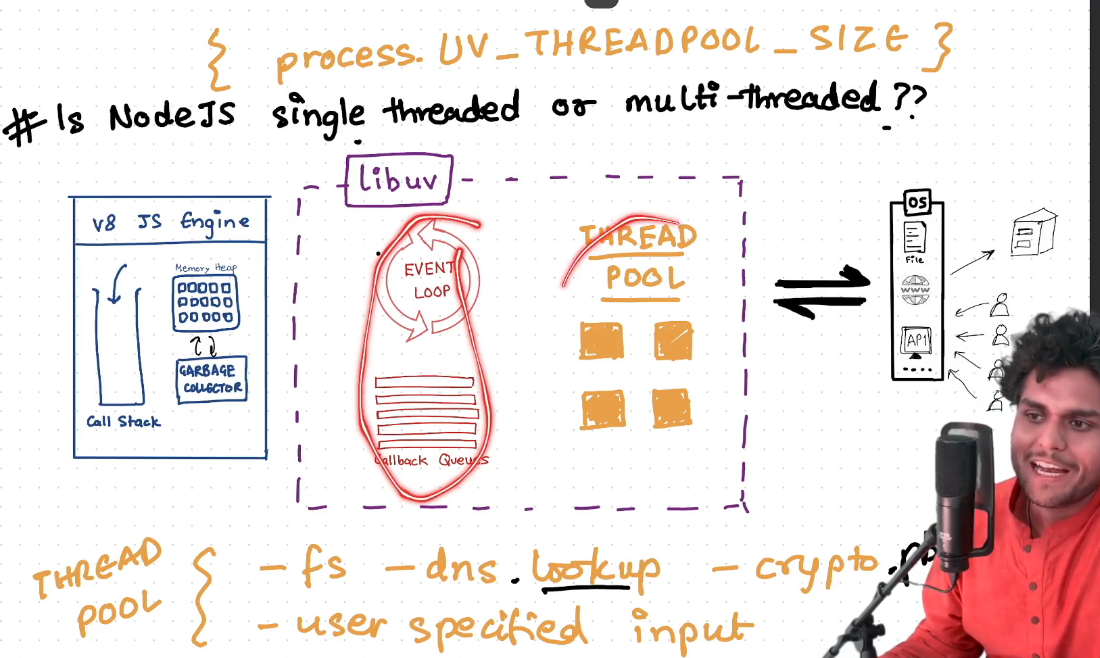 { process. UV_THREADPOOL_SIZE }
# Is NodeJS single threaded or multi-threaded ??
libuv
V8 JS Engine
Memory Heap
GARBAGE
COLLECTOR
Call Stack
EVENT
LOOP
Callback Queues
THREAD
POOL
OS
File
WWW
API
THREAD
POOL
{ - fs - dns.lookup - crypto.
- user specified input